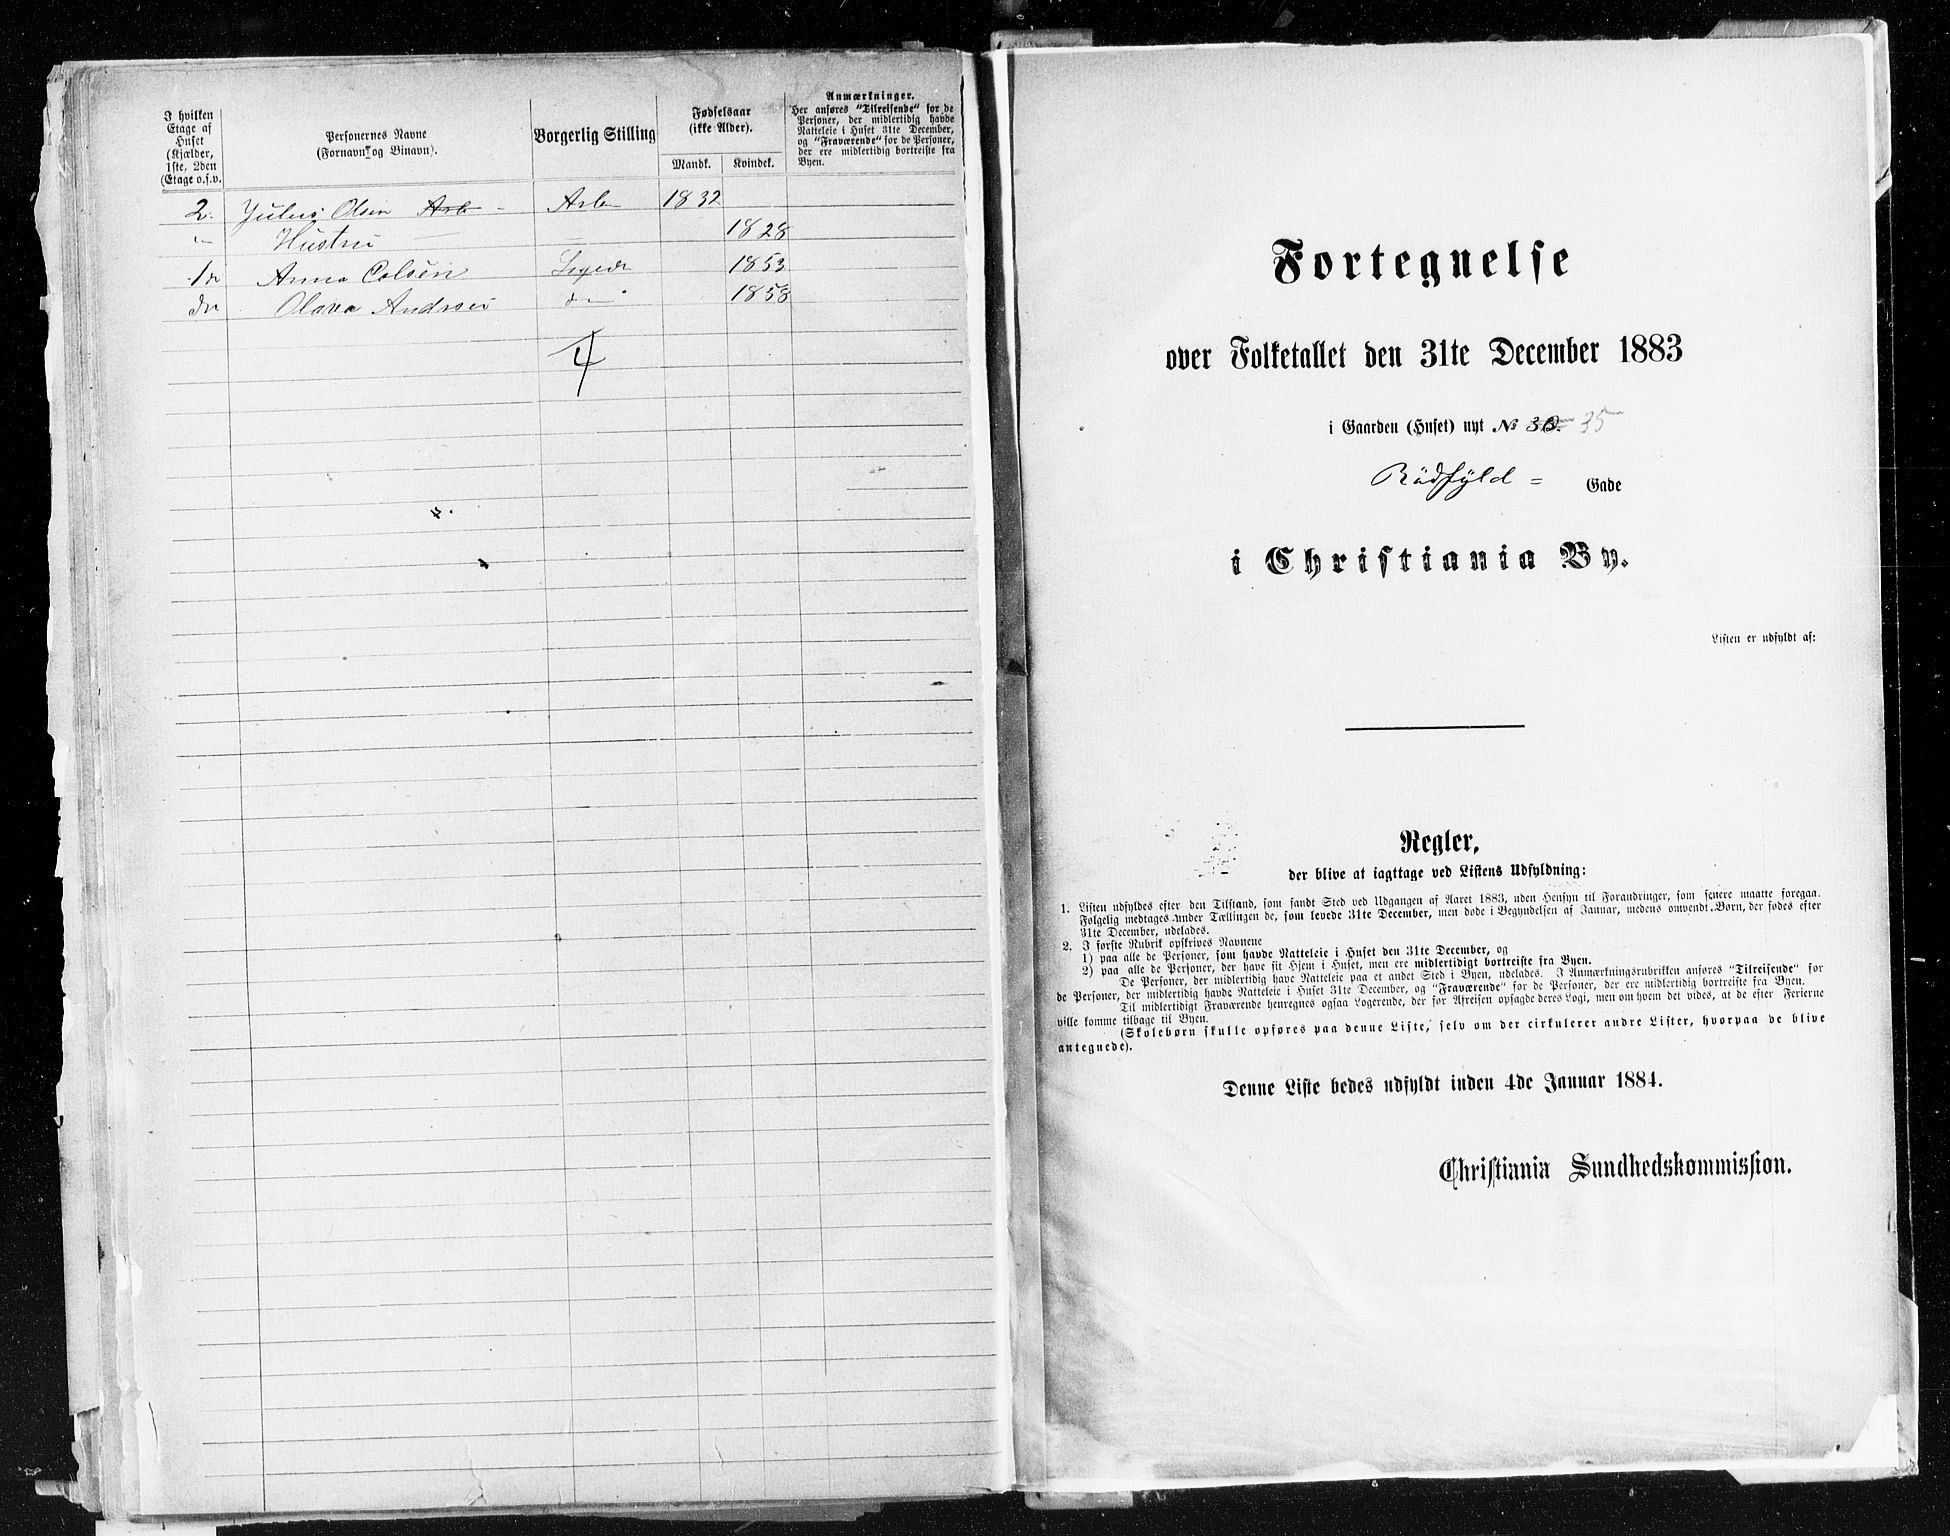 I hvilken
Etage af
Huset
(Kjælder,
1ste, 2den
Etage o.s.v.
Personernes Navne
(Fornavn og Binavn).
Borgerlig Stilling
Fødselsaar
(ikke Alder).
Mandk. Kvindek.
Anmærkninger.
Her anføres "Tilreisende" for de
Personer, der midlertidig havde
Natteleie i Huset 31te December,
og "Fraværende" for de Personer,
der ere midlertidig bortreiste fra
Byen.
2. Julius Olsen Arb Arb 1832
Hustru 1828
1 Anna Colsen 1853
do Olava 1858
4
Fortegnelse
over Folketallet den 31te December 1883
i Gaarden (Huset) nyt No 30. 35
Rödfyld = Gade
i Christiania By.
Listen er udfyldt af:
Regler,
der blive at iagttage ved Listens Udfyldning:
1. Listen udfyldes efter den Tilstand, som fandt Sted ved Udgangen af Aaret 1883, uden Hensyn til Forandringer, som senere maatte foregaa.
Følgelig medtages under Tællingen de, som levede 31te December, men døde i Begyndelsen af Januar, medens omvendt Børn, der fødes efter
31te December, udelades.
2. I første Rubrik opskrives Navnene
1) paa alle de Personer, som havde Natteleie i Huset den 31te December, og
2) paa alle de Personer, der have sit Hjem i Huset, men ere midlertidigt bortreiste fra Byen.
De Personer, der midlertidig have Natteleie paa et andet Sted i Byen, udelades. I Anmærkningsrubrikken anføres "Tilreisende" for
de Personer, der midlertidig havde Natteleie i Huset 31te December, og "Fraværende" for de Personer, der ere midlertidig bortreiste fra Byen.
Til midlertidigt Fraværende henregnes ogsaa Logerende, der før Afreisen opsagde deres Logi, men om hvem det vides, at de efter Ferierne
ville komme tilbage til Byen.
(Skolebørn skulle opføres paa denne Liste, selv om der cirkulerer andre Lister, hvorpaa de blive
antegnede).
Denne Liste bedes udfyldt inden 4de Januar 1884.
Christiania Sundhedskommission.